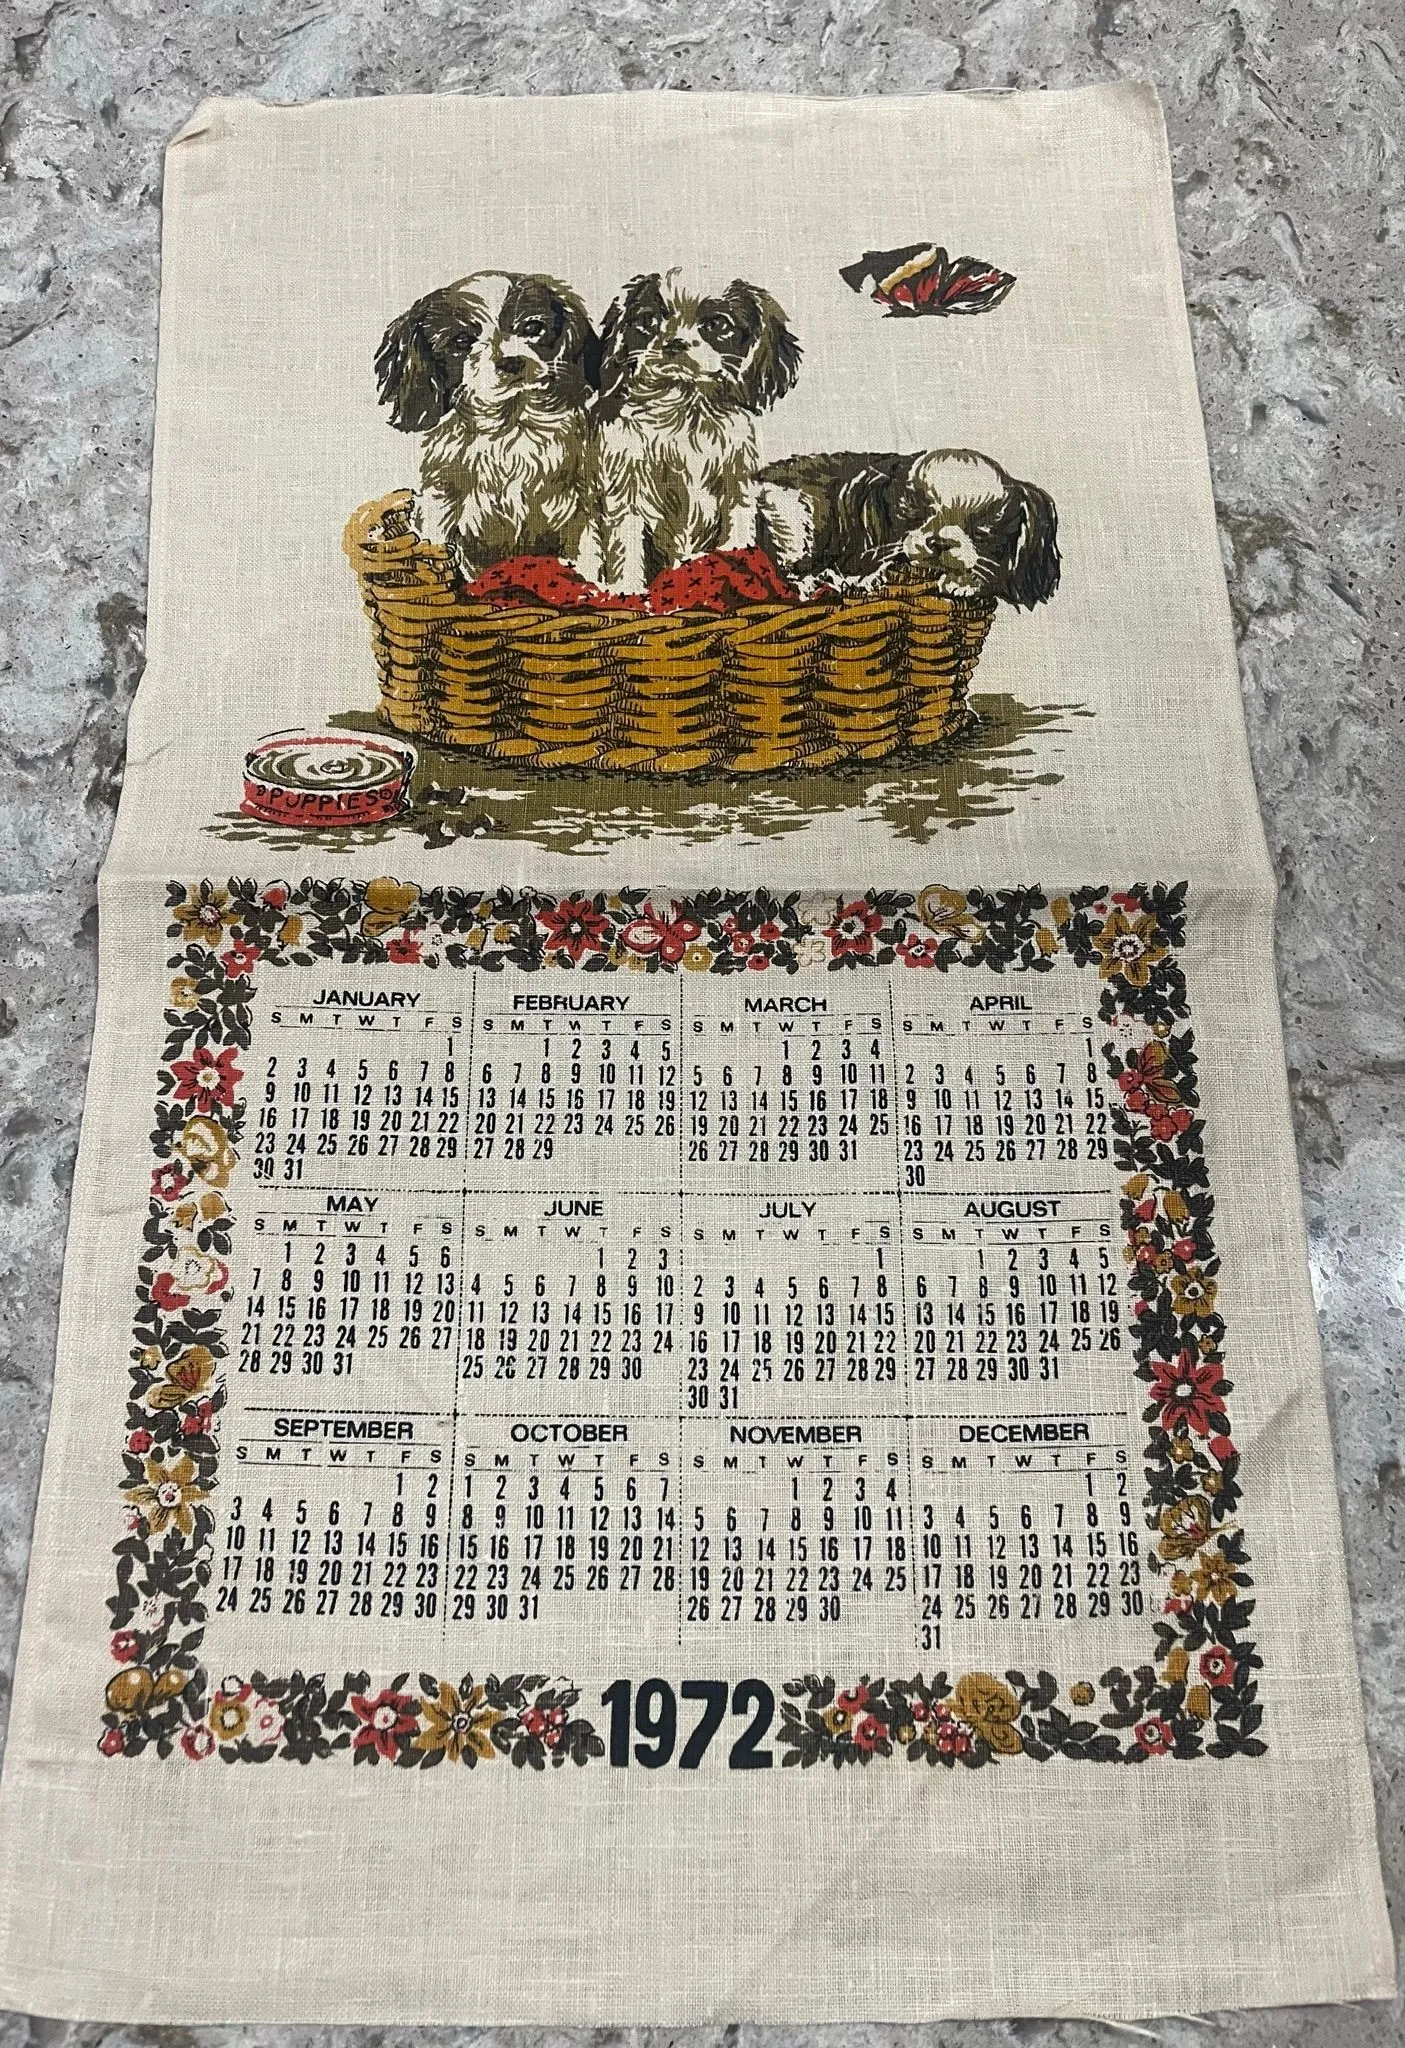 PUPPIES
JANUARY FEBRUARY MARCH APRIL
S M T W T F S S M T W T F S S M T W T F S S M T W T F S
1 1 2 3 4 5 1 2 3 4 1
2 3 4 5 6 7 8 6 7 8 9 10 11 12 5 6 7 8 9 10 11 2 3 4 5 6 7 8
9 10 11 12 13 14 15 13 14 15 16 17 18 19 12 13 14 15 16 17 18 9 10 11 12 13 14 15
16 17 18 19 20 21 22 20 21 22 23 24 25 26 19 20 21 22 23 24 25 16 17 18 19 20 21 22
23 24 25 26 27 28 29 27 28 29 26 27 28 29 30 31 23 24 25 26 27 28 29
30 31 30
MAY JUNE JULY AUGUST
S M T W T F S S M T W T F S S M T W T F S S M T W T F S
1 2 3 4 5 6 1 2 3 1 1 2 3 4 5
7 8 9 10 11 12 13 4 5 6 7 8 9 10 2 3 4 5 6 7 8 6 7 8 9 10 11 12
14 15 16 17 18 19 20 11 12 13 14 15 16 17 9 10 11 12 13 14 15 13 14 15 16 17 18 19
21 22 23 24 25 26 27 18 19 20 21 22 23 24 16 17 18 19 20 21 22 20 21 22 23 24 25 26
28 29 30 31 25 26 27 28 29 30 23 24 25 26 27 28 29 27 28 29 30 31
30 31
SEPTEMBER OCTOBER NOVEMBER DECEMBER
S M T W T F S S M T W T F S S M T W T F S S M T W T F S
1 2 1 2 3 4 5 6 7 1 2 3 4 1 2
3 4 5 6 7 8 9 8 9 10 11 12 13 14 5 6 7 8 9 10 11 3 4 5 6 7 8 9
10 11 12 13 14 15 16 15 16 17 18 19 20 21 12 13 14 15 16 17 18 10 11 12 13 14 15 16
17 18 19 20 21 22 23 22 23 24 25 26 27 28 19 20 21 22 23 24 25 17 18 19 20 21 22 23
24 25 26 27 28 29 30 29 30 31 26 27 28 29 30 24 25 26 27 28 29 30
31
1972